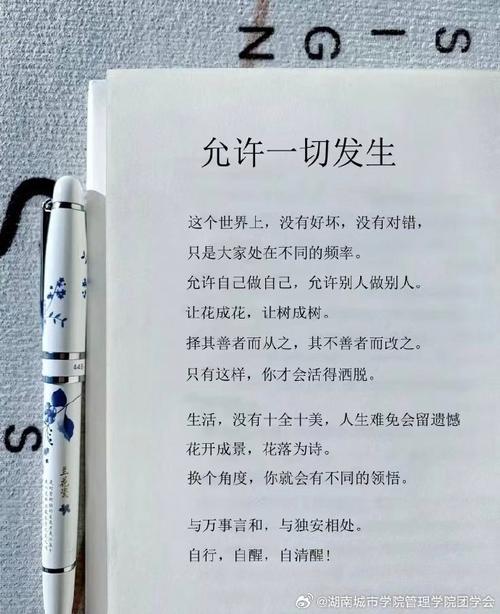 SIGN
允许一切发生
这个世界上，没有好坏，没有对错，
只是大家处在不同的频率。
允许自己做自己，允许别人做别人。
让花成花，让树成树。
择其善者而从之，其不善者而改之。
只有这样，你才会活得洒脱。
生活，没有十全十美，人生难免会留遗憾
花开成景，花落为诗。
换个角度，你就会有不同的领悟。
与万事言和，与独安相处。
自行，自醒，自清醒！
S
兰花瓷
@湖南城市学院管理学院团学会